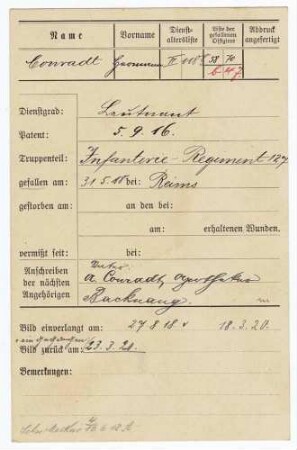 Name Vorname Dienst- altersliste Liste der gefallenen Offiziere Abdruck angefertigt
Conradt Hermann 58 70
Dienstgrad: Leutnant
Patent: 5. 9. 16.
Truppenteil: Infanterie-Regiment 127
gefallen am: 31.5.18 bei: Reims
gestorben am: an den bei:
am: erhaltenen Wunden.
vermißt seit: bei:
Vater
Anschreiben A. Conradt, Apotheker
der nächsten Backnang.
Angehörigen
Bild einverlangt am: 27.8.18. 18.3.20.
Bild zurück am: 23.3.20.
Bemerkungen: